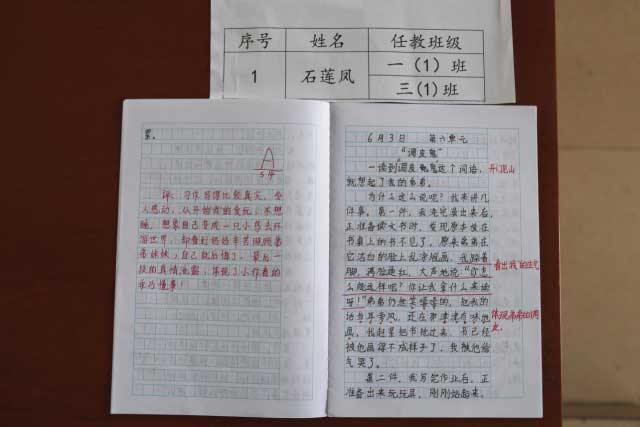 序号 姓名 任教班级
1 石莲凤 一(1)班
三(1)班
累。
A
5.4
评：习作写得比较真实，令
人感动，从开始我的爱玩，不想
睡，想象自己变成一只小鸟去环
游世界，却看到妈妈辛苦照顾弟
弟妹妹，自己就后悔了，最后一
段的真情流露，体现了小作者的
乖巧懂事！
6月3日 第六单元
“调皮鬼”
一读到调皮鬼这个词语，
就想起了我的弟弟。
开门见山
为什么这么说呢？我来讲几
件事。第一件，我洗完澡出来后，
正准备读文书时，发现原本放在
书桌上的书不见了，原来弟弟在
它洁白的脸上乱涂乱画，我跺着
脚，满脸通红，大声地说：“你怎
么能这样呢？你让我拿什么来读
呀！”弟弟仍然笑嘻嘻的，把我的
话当耳旁风，还在那津津有味地
画，我赶紧把书抢过来，书已经
被他画得不成样子了，我被他给
气哭了。
看出“我”的生气
体现弟弟的调
皮。
第二件，我写完作业后，正
准备出来玩玩具，刚刚站起来，